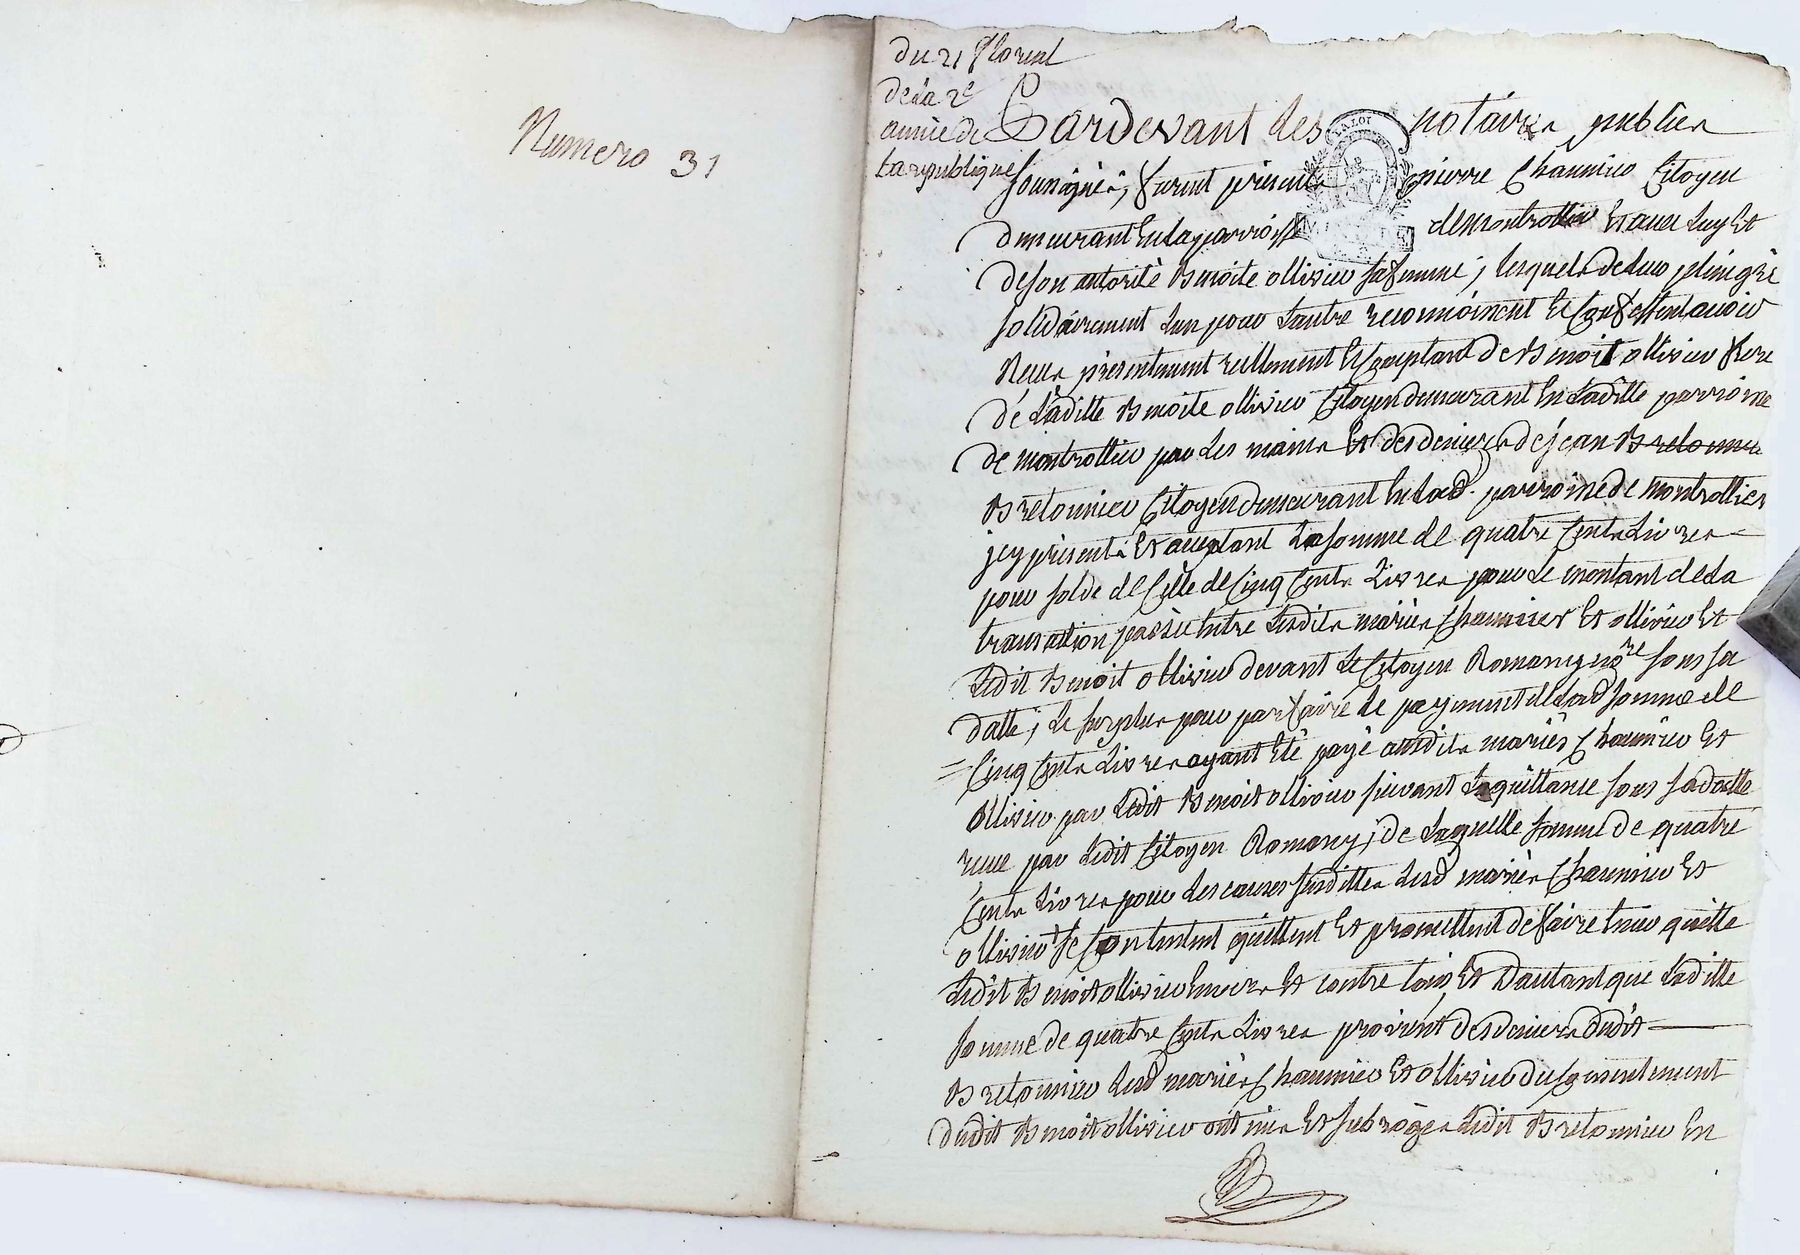 Numero 31
du 21 floreal
de la 2e
année de
la republique
Pardevant les notaires publics
soussignés, furent présents pierre Chaumier Citoyen
demeurant en la parroisse de montrottier et avec luy et
de son autorité Benoite ollivier sa femme, lesquels de leur plein gré
solidairement l'un pour l'autre reconnoissent et Confessent avoir
Reçu présentement réellement et Comptant de Benoit ollivier frere
de laditte Benoite ollivier Citoyen demeurant En laditte parroisse
de montrottier par les mains Et des deniers de jean Bretonnier
Bretonnier Citoyen demeurant En lad. parroisse de montrottier
jcy présent Et acceptant La somme de quatre Cents Livres
pour solde de Celle de Cinq Cents Livres pour le montant de la
transation passée Entre lesdits mariés Chaumier Et ollivier Et
ledit Benoit ollivier devant le Citoyen Romany nore sous sa
datte, le surplus pour parfaire le payement de lad somme de
Cinq Cents Livres ayant Eté payé auxdits mariés Chaumier Et
ollivier par ledit Benoit ollivier suivant la quittance sous sa datte
reçue par ledit Citoyen Romany, de laquelle somme de quatre
Cents Livres pour les causes susdittes lesd mariés Chaumier Et
ollivier se Contentent quittent Et promettent de faire tenir quitte
ledit Benoit ollivier Envers Et contre tous, Et D'autant que laditte
somme de quatre Cents Livres provient des deniers dudit
Bretonnier lesd mariés Chaumier Et ollivier du Consentement
dudit Benoit ollivier ont mis Et subrogés ledit Bretonnier En
LA LOI